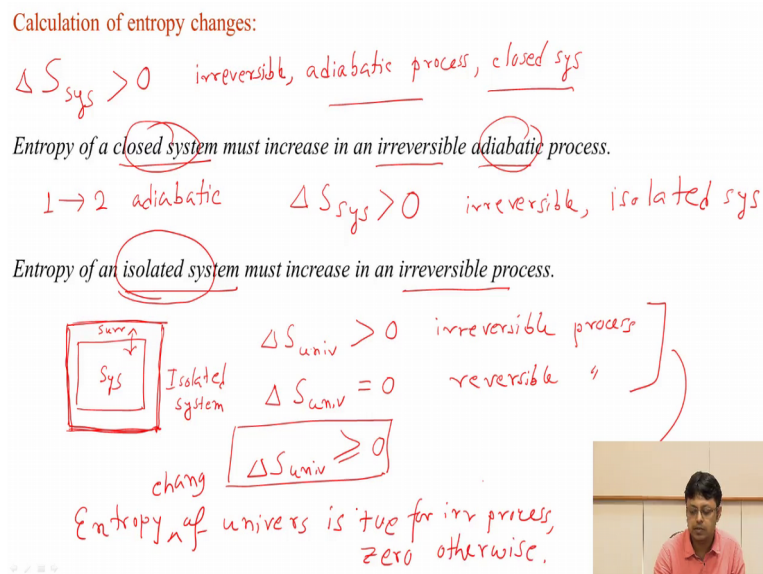 Calculation of entropy changes:
Δ S sys > 0 irreversible, adiabatic process, closed sys
Entropy of a closed system must increase in an irreversible adiabatic process.
1 → 2 adiabatic Δ S sys > 0 irreversible, isolated sys
Entropy of an isolated system must increase in an irreversible process.
surr
Sys
Isolated
system
Δ S univ > 0 irreversible process
Δ S univ = 0 reversible "
Δ S univ ≥ 0
chang
Entropy ^ of univers is +ve for irr process,
zero otherwise.